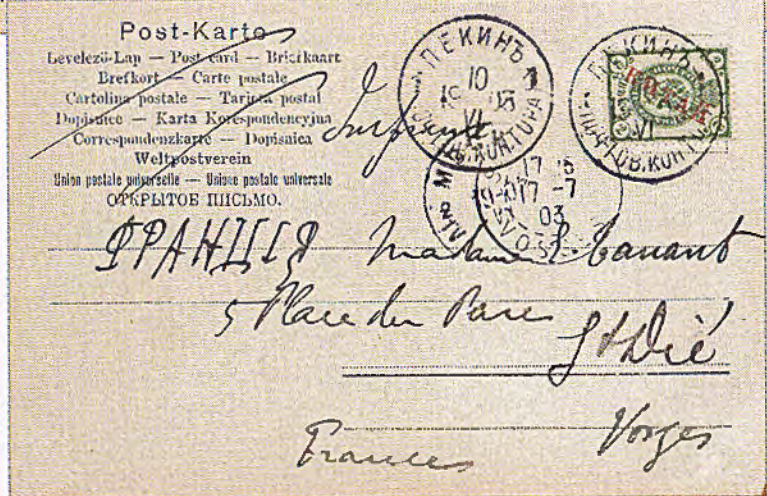 Post-Karte
Levelező-Lap — Post card — Briefkaart
Brefkort — Carte postale
Cartolina postale — Tarjeta postal
Dopisnice — Karta Korespondencyjna
Correspondenzkarte — Dopisnica
Weltpostverein
Union postale universelle — Unione postale universale
ОТКРЫТОЕ ПИСЬМО.
ПЕКИНЪ
10
VI
КОНТОРА
ПЕКИНЪ
VI
ПОЧТОВ. КОНТОРА
КИТАЙ
17 -7
03
ФРАНЦІЯ Madame
5 Place du Parc
St Dié
Vosges
France